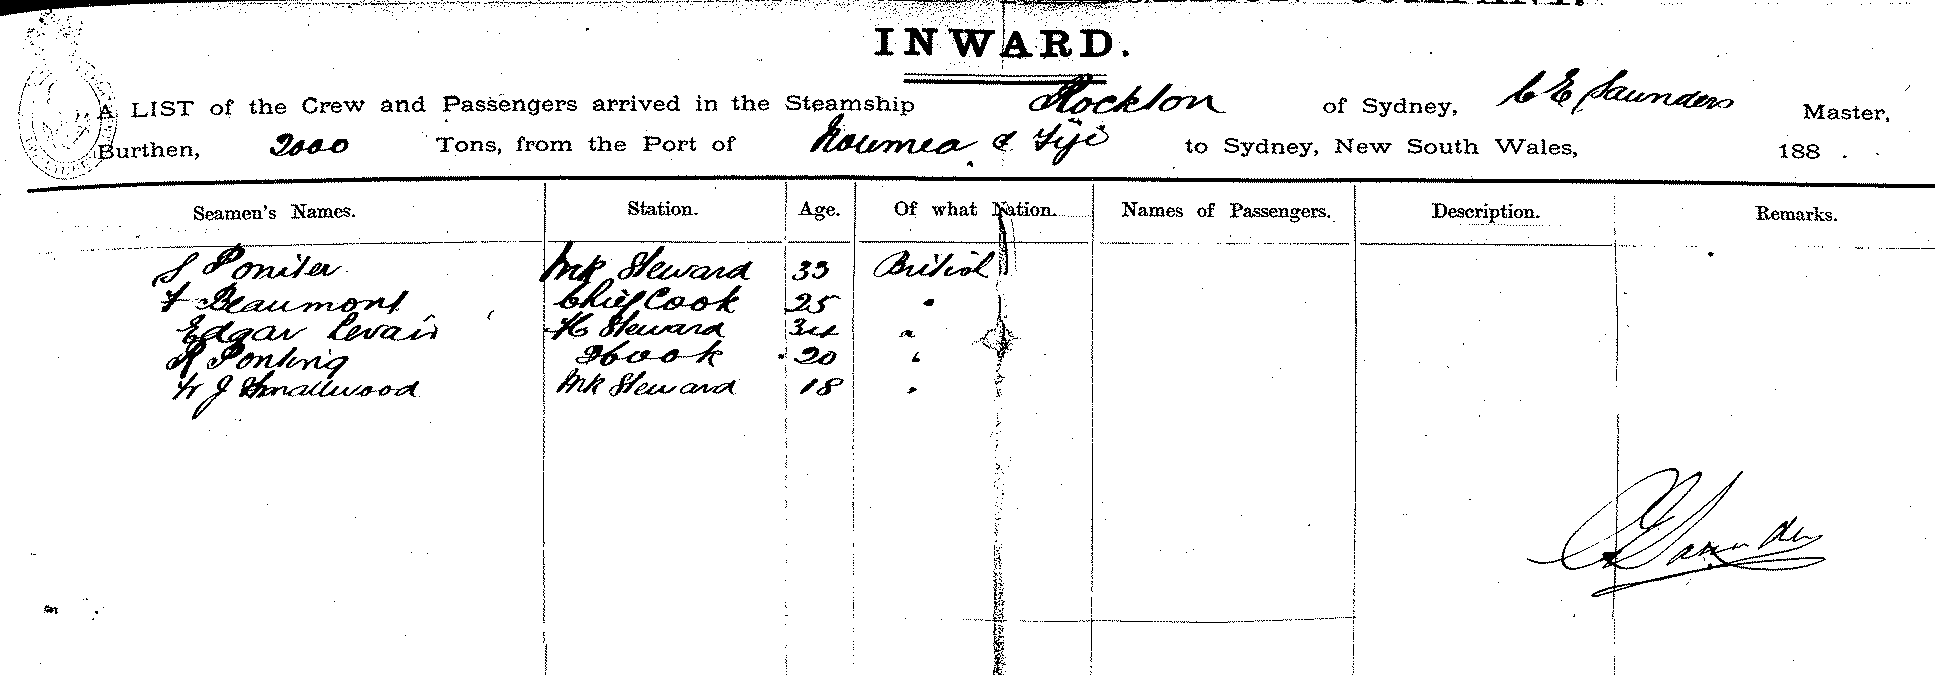 INWARD.
A LIST of the Crew and Passengers arrived in the Steamship Rockton of Sydney, C E Saunders Master,
Burthen, 2000 Tons, from the Port of Noumea & Fiji to Sydney, New South Wales, 188 .
Seamen's Names. Station. Age. Of what Nation. Names of Passengers. Description. Remarks.
S Steward 33 British
F Beaumont Chief Cook 25 "
Edgar Steward 34 "
R Ponting 2 Cook 20 "
J Smallwood Steward 18 "
C E Saunders